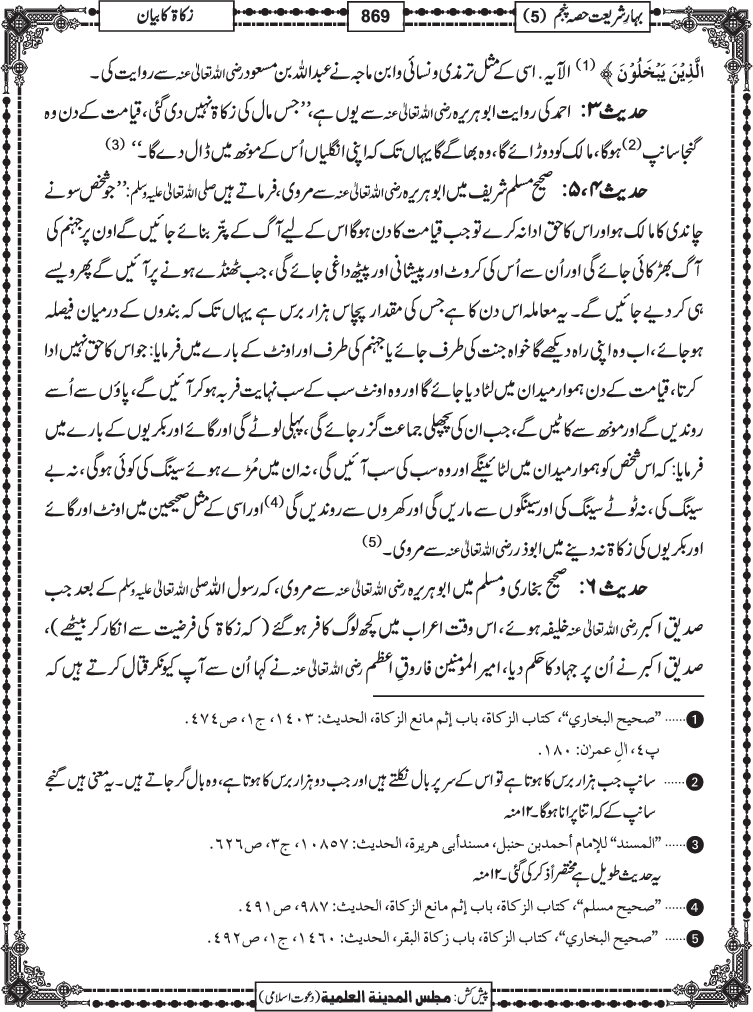 بہارِ شریعت حصہ پنجم (5)
869
زکاۃ کا بیان
الَّذِیْنَ یَبْخَلُوْنَ ﴾ (1) الآیہ. اسی کے مثل ترمذی و نسائی و ابن ماجہ نے عبداﷲ بن مسعود رضی اللہ تعالیٰ عنہ سے روایت کی ۔
حدیث ۳: احمد کی روایت ابوہریرہ رضی اللہ تعالیٰ عنہ سے یوں ہے، ’’جس مال کی زکاۃ نہیں دی گئی، قیامت کے دن وہ
گنجا سانپ (2) ہوگا، مالک کو دوڑائے گا، وہ بھاگے گا یہاں تک کہ اپنی انگلیاں اُس کے مونھ میں ڈال دے گا۔‘‘ (3)
حدیث ۴، ۵: صحیح مسلم شریف میں ابوہریرہ رضی اللہ تعالیٰ عنہ سے مروی، فرماتے ہیں صلی اللہ تعالیٰ علیہ وسلم: ’’جو شخص سونے
چاندی کا مالک ہو اور اس کا حق ادا نہ کرے تو جب قیامت کا دن ہوگا اس کے لیے آگ کے پتّر بنائے جائیں گے اون پر جہنم کی
آگ بھڑکائی جائے گی اور اُن سے اُس کی کروٹ اور پیشانی اور پیٹھ داغی جائے گی، جب ٹھنڈے ہونے پر آئیں گے پھر ویسے
ہی کر دیے جائیں گے۔ یہ معاملہ اس دن کا ہے جس کی مقدار پچاس ہزار برس ہے یہاں تک کہ بندوں کے درمیان فیصلہ
ہوجائے، اب وہ اپنی راہ دیکھے گا خواہ جنت کی طرف جائے یا جہنم کی طرف اور اونٹ کے بارے میں فرمایا: جو اس کا حق نہیں ادا
کرتا، قیامت کے دن ہموار میدان میں لٹا دیا جائے گا اور وہ اونٹ سب کے سب نہایت فربہ ہو کر آئیں گے، پاؤں سے اُسے
روندیں گے اور مونھ سے کاٹیں گے، جب ان کی پچھلی جماعت گزر جائے گی، پہلی لوٹے گی اور گائے اور بکریوں کے بارے میں
فرمایا: کہ اس شخص کو ہموار میدان میں لٹائینگے اور وہ سب کی سب آئیں گی، نہ ان میں مُڑے ہوئے سینگ کی کوئی ہوگی، نہ بے
سینگ کی، نہ ٹوٹے سینگ کی اور سینگوں سے ماریں گی اور کھروں سے روندیں گی (4) اور اسی کے مثل صحیحین میں اونٹ اور گائے
اور بکریوں کی زکاۃ نہ دینے میں ابوذر رضی اللہ تعالیٰ عنہ سے مروی۔ (5)
حدیث ۶: صحیح بخاری و مسلم میں ابوہریرہ رضی اللہ تعالیٰ عنہ سے مروی، کہ رسول اللہ صلی اللہ تعالیٰ علیہ وسلم کے بعد جب
صدیق اکبر رضی اللہ تعالیٰ عنہ خلیفہ ہوئے، اس وقت اعراب میں کچھ لوگ کافر ہوگئے (کہ زکاۃ کی فرضیت سے انکار کر بیٹھے)،
صدیق اکبر نے اُن پر جہاد کا حکم دیا، امیر المومنین فاروقِ اعظم رضی اللہ تعالیٰ عنہ نے کہا اُن سے آپ کیونکر قتال کرتے ہیں کہ
1 ...... ”صحيح البخاري“، كتاب الزكاة، باب إثم مانع الزكاة، الحديث: ١٤٠٣، ج١، ص٤٧٤.
پ٤، اٰلِ عمرٰن: ١٨٠.
2 ...... سانپ جب ہزار برس کا ہوتا ہے تو اس کے سر پر بال نکلتے ہیں اور جب دو ہزار برس کا ہوتا ہے، وہ بال گر جاتے ہیں۔ یہ معنی ہیں گنجے
سانپ کے کہ اتنا پرانا ہوگا۔ ۱۲ منہ
3 ...... ”المسند“ للإمام أحمد بن حنبل، مسند أبی هريرة، الحديث: ١٠٨٥٧، ج٣، ص٦٢٦.
یہ حدیث طویل ہے مختصراً ذکر کی گئی۔ ۱۲ منہ
4 ...... ”صحيح مسلم“، كتاب الزكاة، باب إثم مانع الزكاة، الحديث: ٩٨٧، ص٤٩١.
5 ...... ”صحيح البخاري“، كتاب الزكاة، باب زكاة البقر، الحديث: ١٤٦٠، ج١، ص٤٩٢.
پیش کش: مجلس المدينة العلمية (دعوت اسلامی)